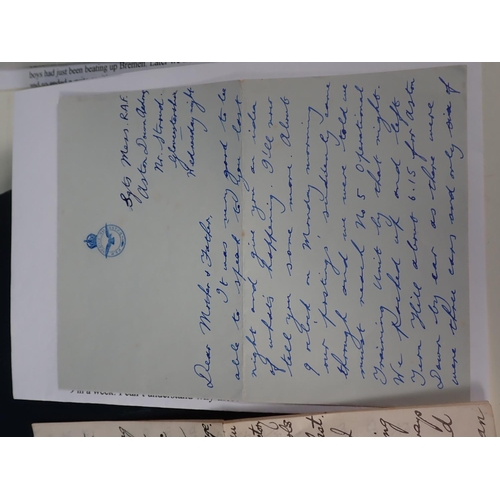 boys had just been beating up Bremen. Later
Sgts Mess R.A.F.
Aston Down Aerodrome
Nr. Stroud
Gloucestershire
Wednesday night
Dear Mother & Father,
It was very good to be
able to speak to you last
night and give you an idea
of what's happening. I'll now
tell you some more. About
9 o'clock on Monday morning
our postings suddenly came
though and we were told we
must reach No 5 Operational
Training Unit by that night.
We packed up and left
Tern Hill about 6.15 for Aston
Down by car as there were
three cars and only six of